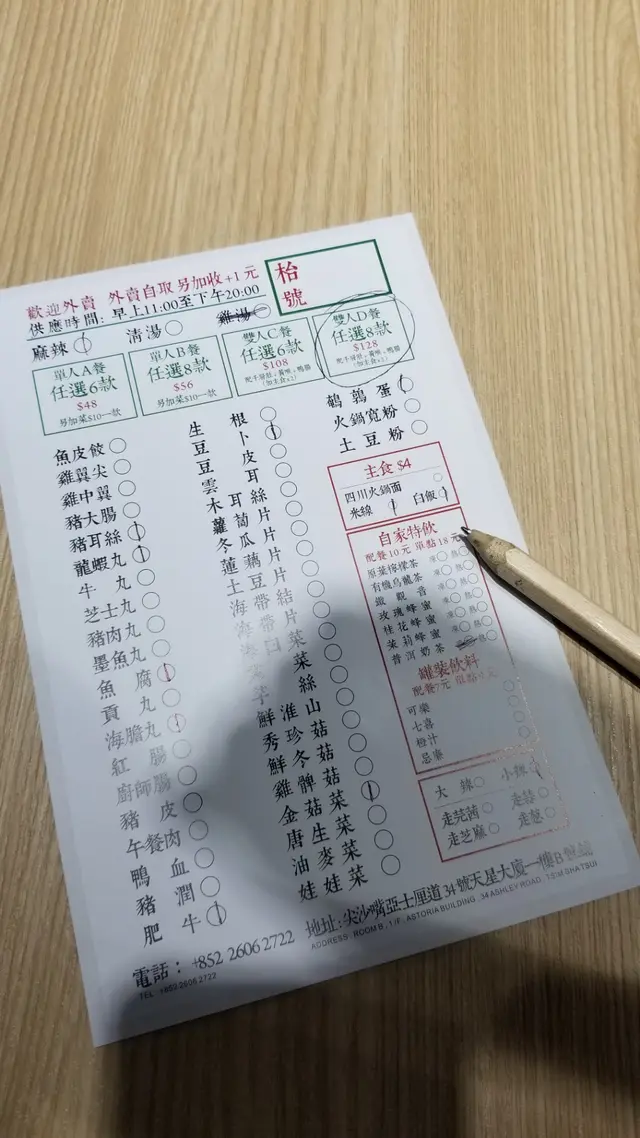 歡迎外賣 外賣自取另加收+1元
供應時間: 早上11:00至下午20:00
枱號
麻辣
清湯
雞湯
單人A餐
任選6款
$48
另加菜$10一款
單人B餐
任選8款
$56
另加菜$10一款
雙人C餐
任選6款
$108
(加主食x2)
雙人D餐
任選8款
$128
(加主食x2)
魚皮餃
雞翼尖
雞中翼
豬大腸
豬耳絲
龍蝦丸
牛丸
芝士丸
豬肉丸
墨魚丸
魚腐
貢丸
海膽丸
紅腸
廚師腸
豬皮
午餐肉
鴨血
豬潤
肥牛
生根
豆卜
豆皮
雲耳
木耳絲
蘿蔔片
冬瓜片
蓮藕片
土豆片
海帶結
鵪鶉蛋
火鍋寬粉
土豆粉
主食 $4
四川火鍋面
米線
白飯
自家特飲
配餐10元 單點18元
原葉檸檬茶
有機烏龍茶
鐵觀音
玫瑰蜂蜜
桂花蜂蜜
茉莉蜂蜜
普洱奶茶
罐裝飲料
可樂
七喜
橙汁
忌廉
大辣
小辣
走芫茜
走蒜
走芝麻
走蔥
唐生菜
油麥菜
娃娃菜
電話: +852 2606 2722
TEL +852 2606 2722
地址: 尖沙嘴亞士厘道34號天星大廈一樓B號舖
ADDRESS: ROOM B, 1/F, ASTORIA BUILDING, 34 ASHLEY ROAD, TSIM SHA TSUI